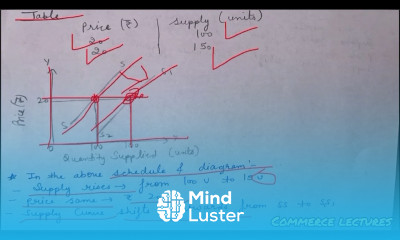 Table
Price (₹) | Supply (units)
20 100
20 150
Y
S S1
20
Price (₹)
S S2
Quantity Supplied (units)
* In the above schedule & diagram:-
- Supply rises → from 100 u to 150 u
- Price same →
- Supply Curve shifts from SS to
Mind
Luster
Commerce lectures